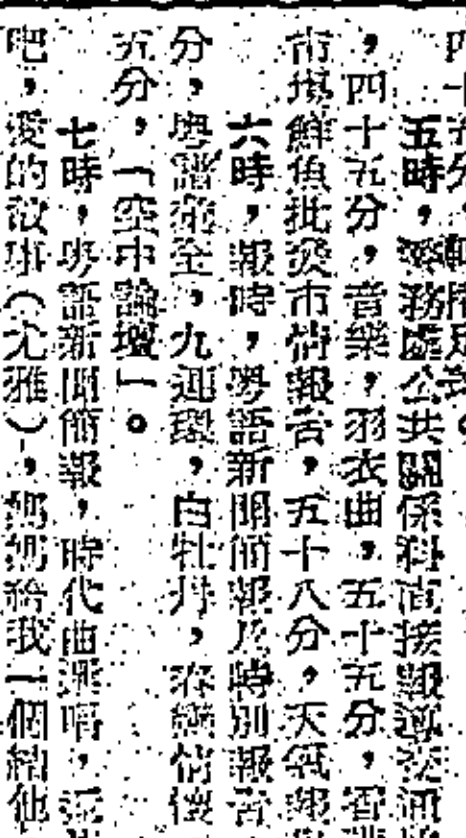 四十五分，
五時，警務處公共關係科直接報導交通
，四十五分，音樂，羽衣曲，五十五分，香
市場鮮魚批發市情報告，五十八分，天氣報
六時，報時，粵語新聞簡報及特別報告
分，粵譜 全，九連環，白牡丹，春 情懷
五分，「空中論壇」。
七時，粵語新聞簡報，時代曲 唱，
吧，愛的故事（尤雅），媽媽給我一個結他